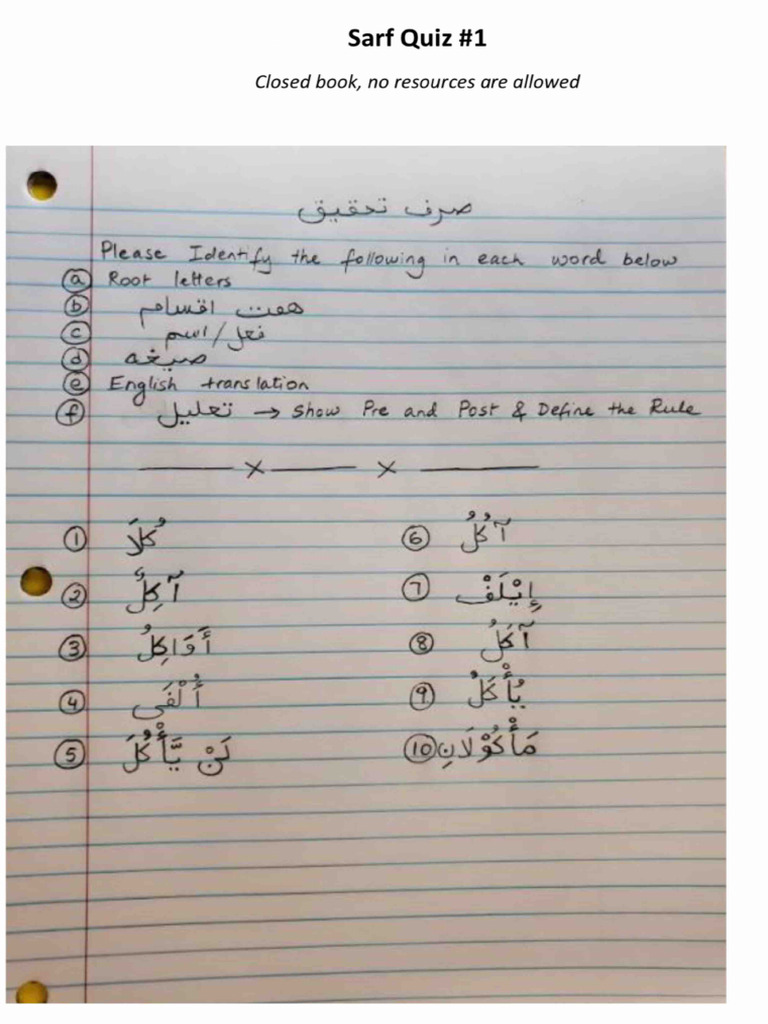 Sarf Quiz #1
Closed book, no resources are allowed
صرف تحقیق
Please Identify the following in each word below
ⓐ Root letters
ⓑ ھفت اقسام
ⓒ فعل/اسم
ⓓ صیغہ
ⓔ English translation
ⓕ تعلیل → Show Pre and Post & Define the Rule
① كُلَا
② آكِلٌ
③ أَوَاكِلُ
④ أُلْفَى
⑤ لَنْ يَّأْكُلَ
⑥ آكُلُ
⑦ إِيْلَفْ
⑧ آكَلُ
⑨ يُأْكَلُ
⑩ مَأْكُوْلَانِ